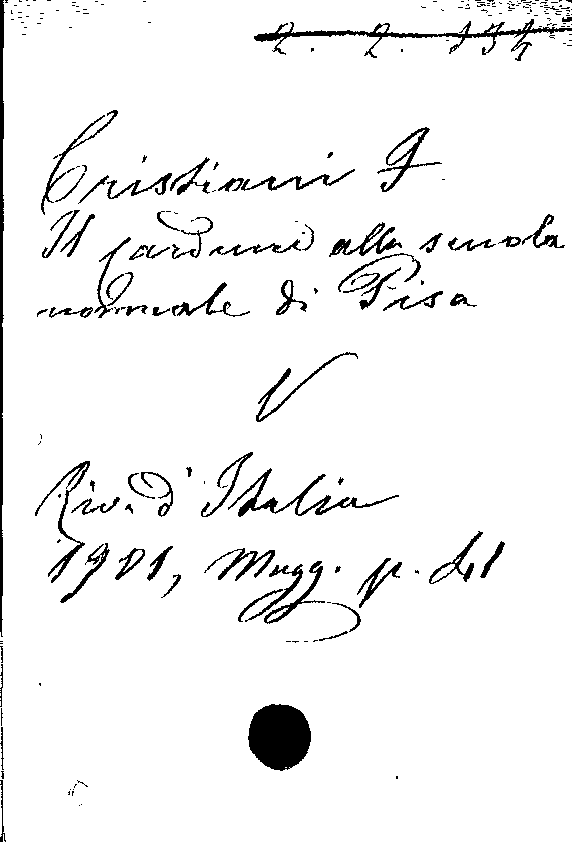 2. 2. 134
Cristiani G
Il Carducci alla scuola
normale di Pisa
V
Riv. d'Italia
1901, Magg. p. 41